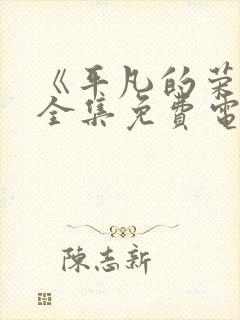 《平凡的荣
全集免費電
陳志新